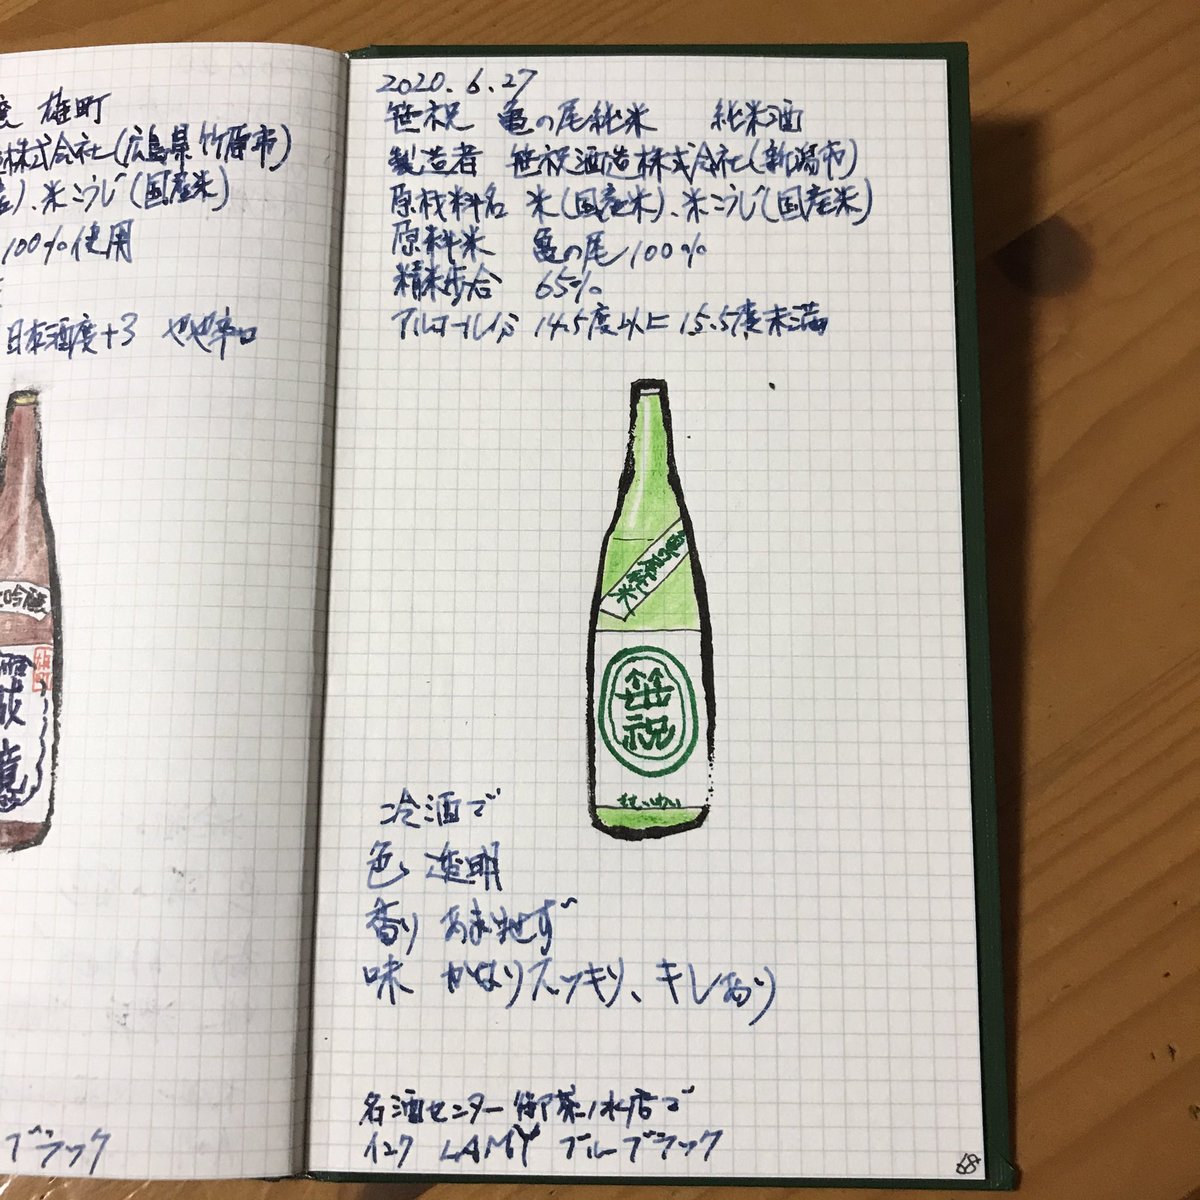 雄町
株式会社(広島県竹原市)
)、米こうじ(国産米)
100%使用
日本酒度+3 やや辛口
吟醸
雄町
ブラック
2020.6.27
笹祝 亀の尾純米 純米酒
製造者 笹祝酒造株式会社(新潟市)
原材料名 米(国産米)、米こうじ(国産米)
原料米 亀の尾100%
精米歩合 65%
アルコール分 14.5度以上15.5度未満
亀の尾純米
笹祝
冷酒で
色 透明
香り あまりせず
味 かなりスッキリ、キレあり
名酒センター御茶ノ水店で
インク LAMY ブルーブラック
68